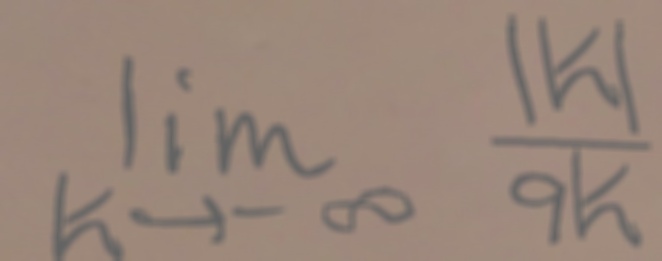 lim |k|
k→-∞ 9k